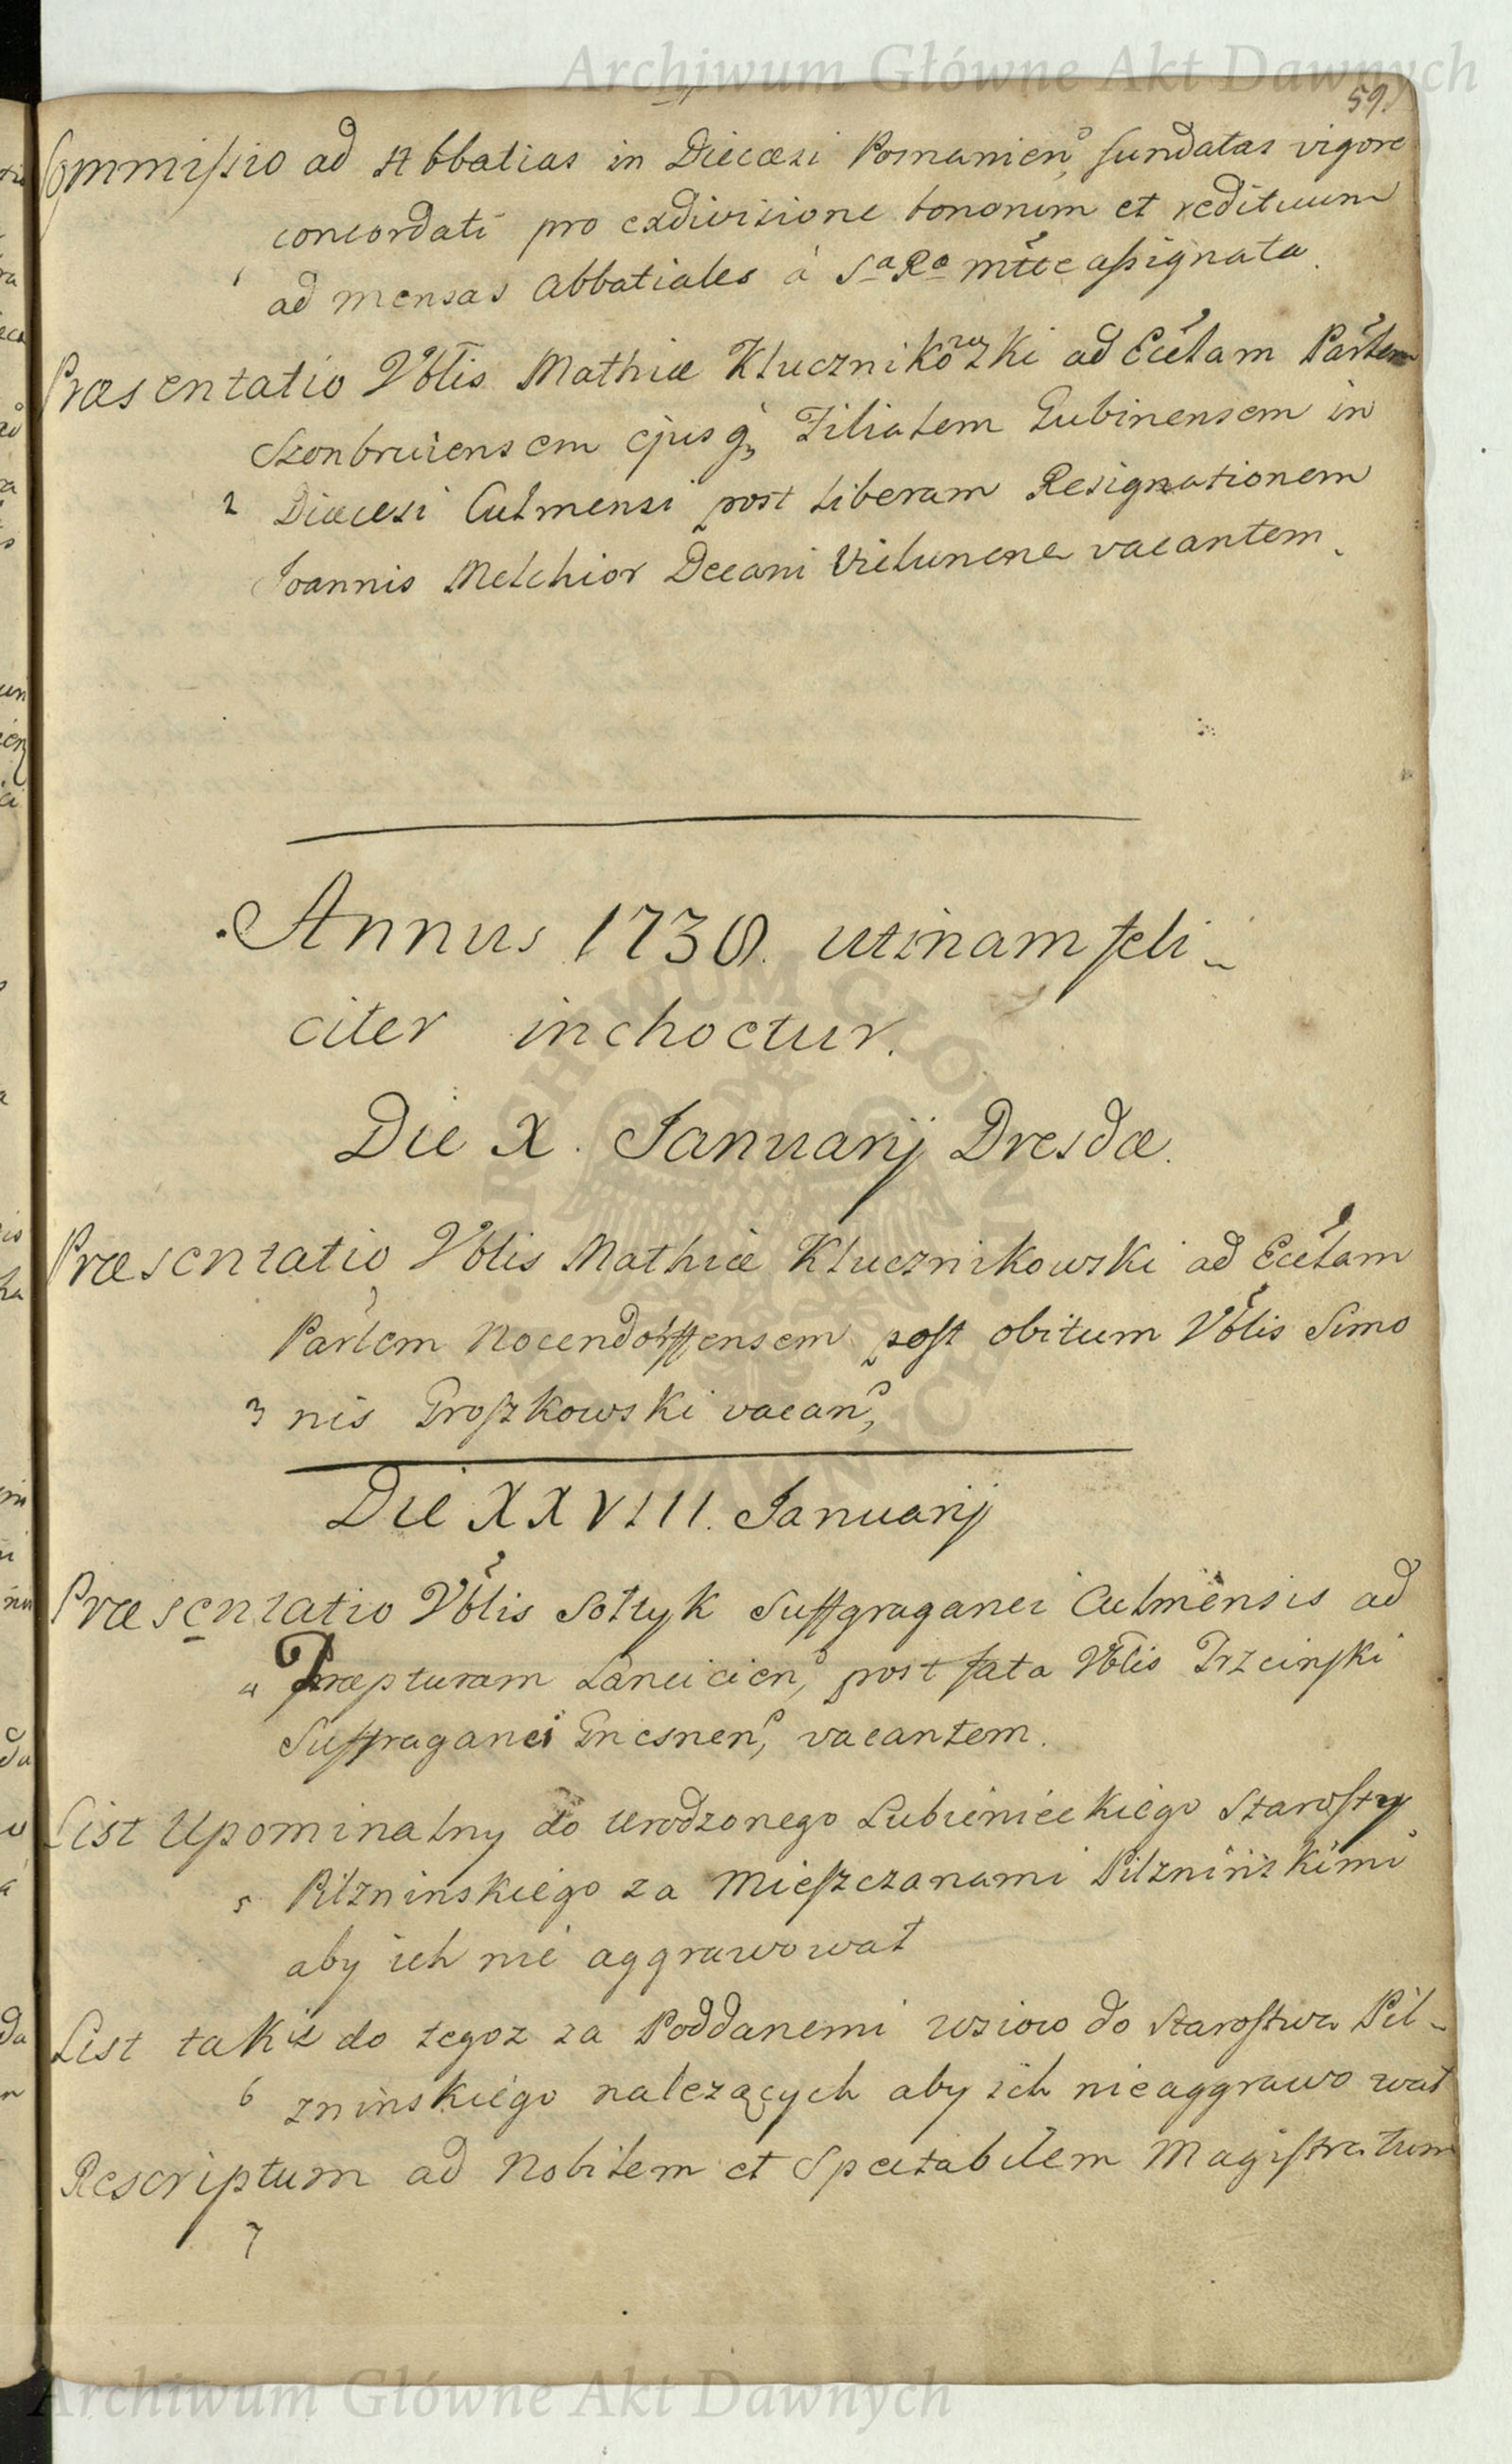 Archiwum Główne Akt Dawnych
59.
Commissio ad Abbatias in Diecæsi Posnanien, fundatas vigore
concordati pro exdivisione bonorum et redituum
1 ad mensas abbatiales à Sa Ra mtte assignata.
Præsentatio Vblis Mathiæ Kluczniko wski ad Ecclam Parlem
Szonbruiensem ejusq, Filialem Gubinensem in
2 Diæcesi Culmensi post liberam Resignationem
Joannis Melchior Decani Vielunens vacantem.
Annus 1738. utinam feli-
citer inchoetur.
Die X. Januarij Dresdæ.
Præsentatio Vblis Mathiæ Klucznikowski ad Ecclam
Parlem Nocendorffensem post obitum Vblis Simo
3 nis Groszkowski vacan,
Die XXVIII. Januarij
Præsentatio Vblis Sołtyk Suffgraganei Culmensis ad
4 Præpturam Lancicien, post fata Vblis Trzcinski
Suffraganei Gnesnen, vacantem.
List Upominalny do Urodzonego Lubienieckiego Starosty
5 Pilzninskiego za Mieszczanami Pilznińskimi
aby ich nie aggrawował
List takiż do tegoz za Poddanemi wsiow do Starostwa Pil-
6 znińskiego nalezących aby ich nie aggrawo wał
Rescriptum ad Nobilem et Spectabilem Magistratum
7
Archiwum Główne Akt Dawnych